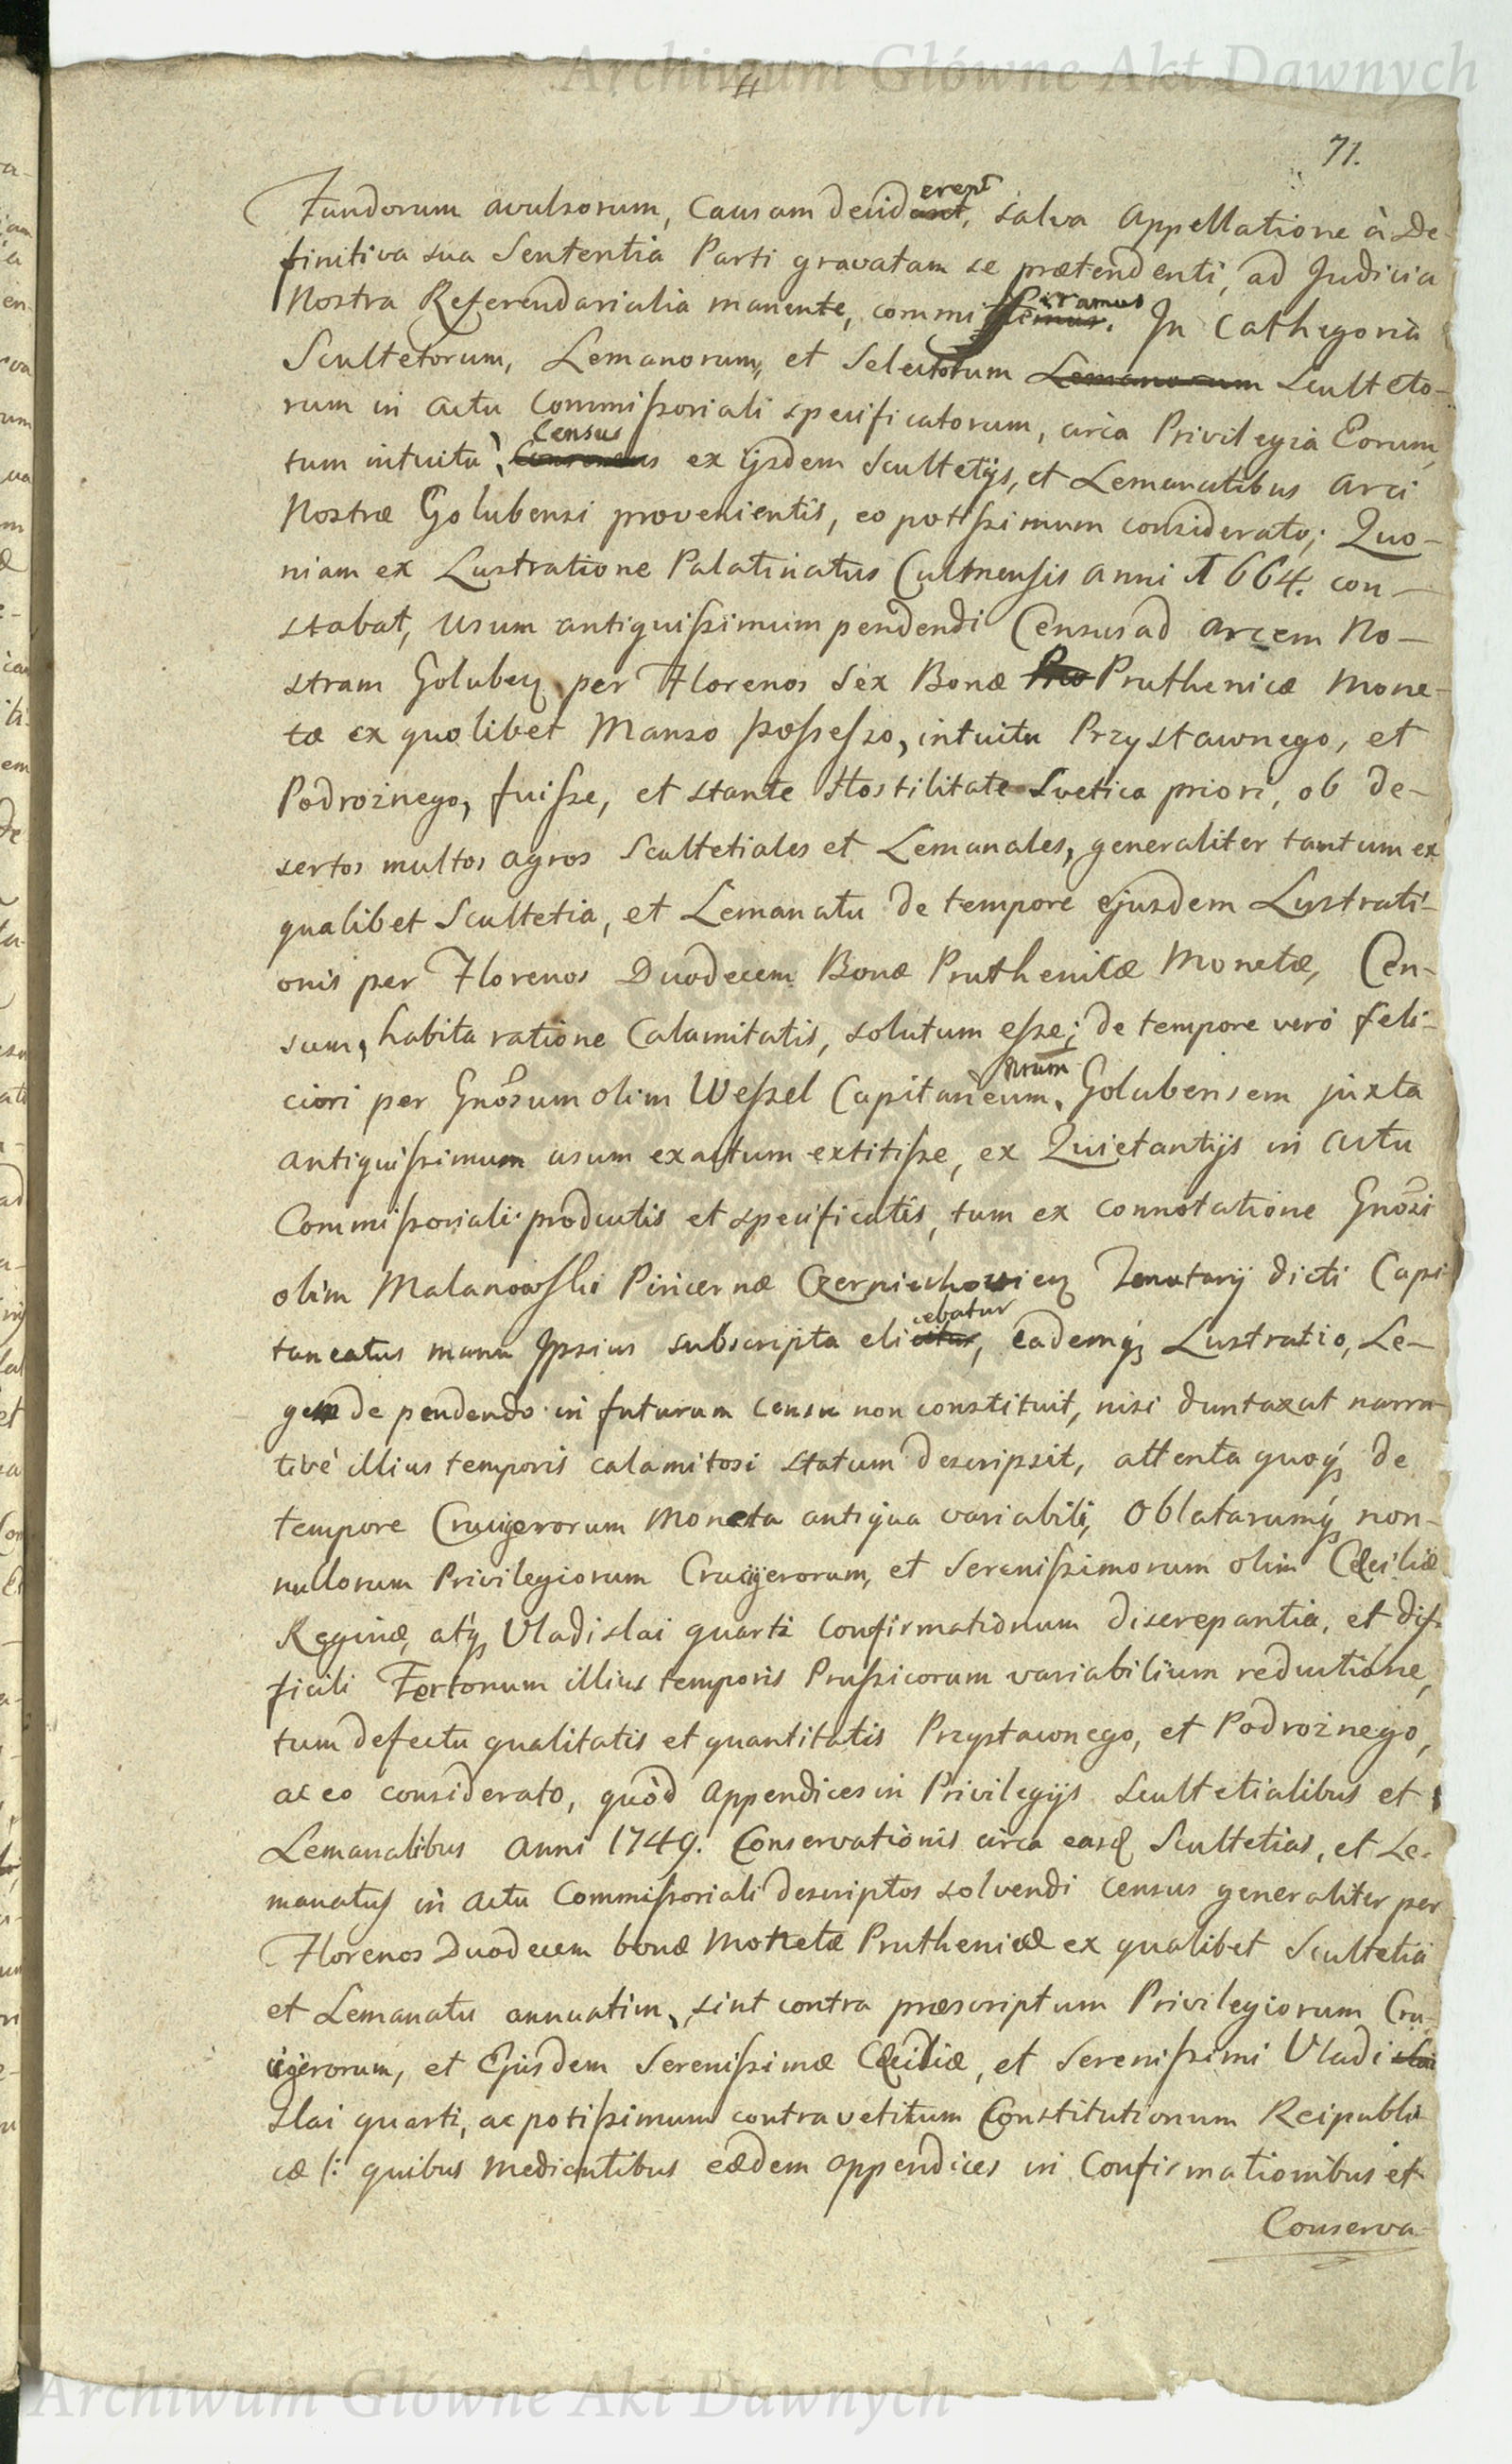 Archiwum Główne Akt Dawnych
71.
Fundorum avulsorum, Causam decidant erent, salva Appellatione à De-
finitiva sua Sententia Parti gravatam se prætendenti, ad Judicia
Nostra Referendarialia manente, commi simus. seramus In Cathegoria
Scultetorum, Lemanorum, et Selectorum Lemanorum Sculteto-
rum in actu Commissoriali specificatorum, circa Privilegia Eorum,
tum intuitu Census ex ijsdem Scultetijs, et Lemanatibus Arci
Nostræ Golubensi provenientis, eo potissimum considerato; Quo-
niam ex Lustratione Palatinatus Culmensis anni 1664. con-
stabat, usum antiquissimum pendendi Census ad Arcem No-
stram Golubeń per Florenos Sex Bonæ Pro Pruthenicæ Mone-
tæ ex quolibet Manso possesso, intuitu Przystawnego, et
Podrożnego, fuisse, et stante Hostilitate Svetica priori, ob de-
sertos multos agros Scultetiales et Lemanales, generaliter tantum ex
qualibet Scultetia, et Lemanatu de tempore ejusdem Lustrati-
onis per Florenos Duodecem Bonæ Pruthenicæ Monetæ, Cen-
sum, habita ratione Calamitatis, solutum esse; de tempore verò feli-
ciori per Gnosum olim Wessel Capitaneum Nrum Golubensem juxta
antiquissimum usum exactum extitisse, ex Quietantijs in Actu
Commissoriali productis et specificatis, tum ex connotatione Gnosi
olim Malanowski Pincernæ Czerniechovień Tenutarij dicti Capi-
taneatus manu Ipsius subscripta elicitur cebatur, eademq; Lustratio, Le-
gem de pendendo in futurum censu non constituit, nisi duntaxat narra-
tivè illius temporis calamitosi statum descripsit, attenta quoq; de
tempore Crucigerorum Moneta antiqua variabili, Oblatarumq; non-
nullorum Privilegiorum Crucigerorum, et Serenissimorum olim Cæciliæ
Reginæ, atq; Vladislai quarti Confirmationum discrepantia, et dif-
ficili Fertonum illius temporis Prussicorum variabilium reductione,
tum defectu qualitatis et quantitatis Przystawnego, et Podrożnego,
ac eo considerato, quòd Appendices in Privilegijs Scultetialibus et
Lemanalibus Anni 1749. Conservationis circa easd Scultetias, et Le-
manatus in Actu Commissoriali descriptos solvendi census generaliter per
Florenos Duodecem bonæ Monetæ Pruthenicæ ex qualibet Scultetia
et Lemanatu annuatim, sint contra præscriptum Privilegiorum Cru-
cigerorum, et Ejusdem Serenissimæ Cæciliæ, et Serenissimi Vladi slai
slai quarti, ac potissimum contra vetitum Constitutionum Reipubli-
cæ /: quibus Medientibus eædem appendices in Confirmationibus et
Conserva-
Archiwum Główne Akt Dawnych